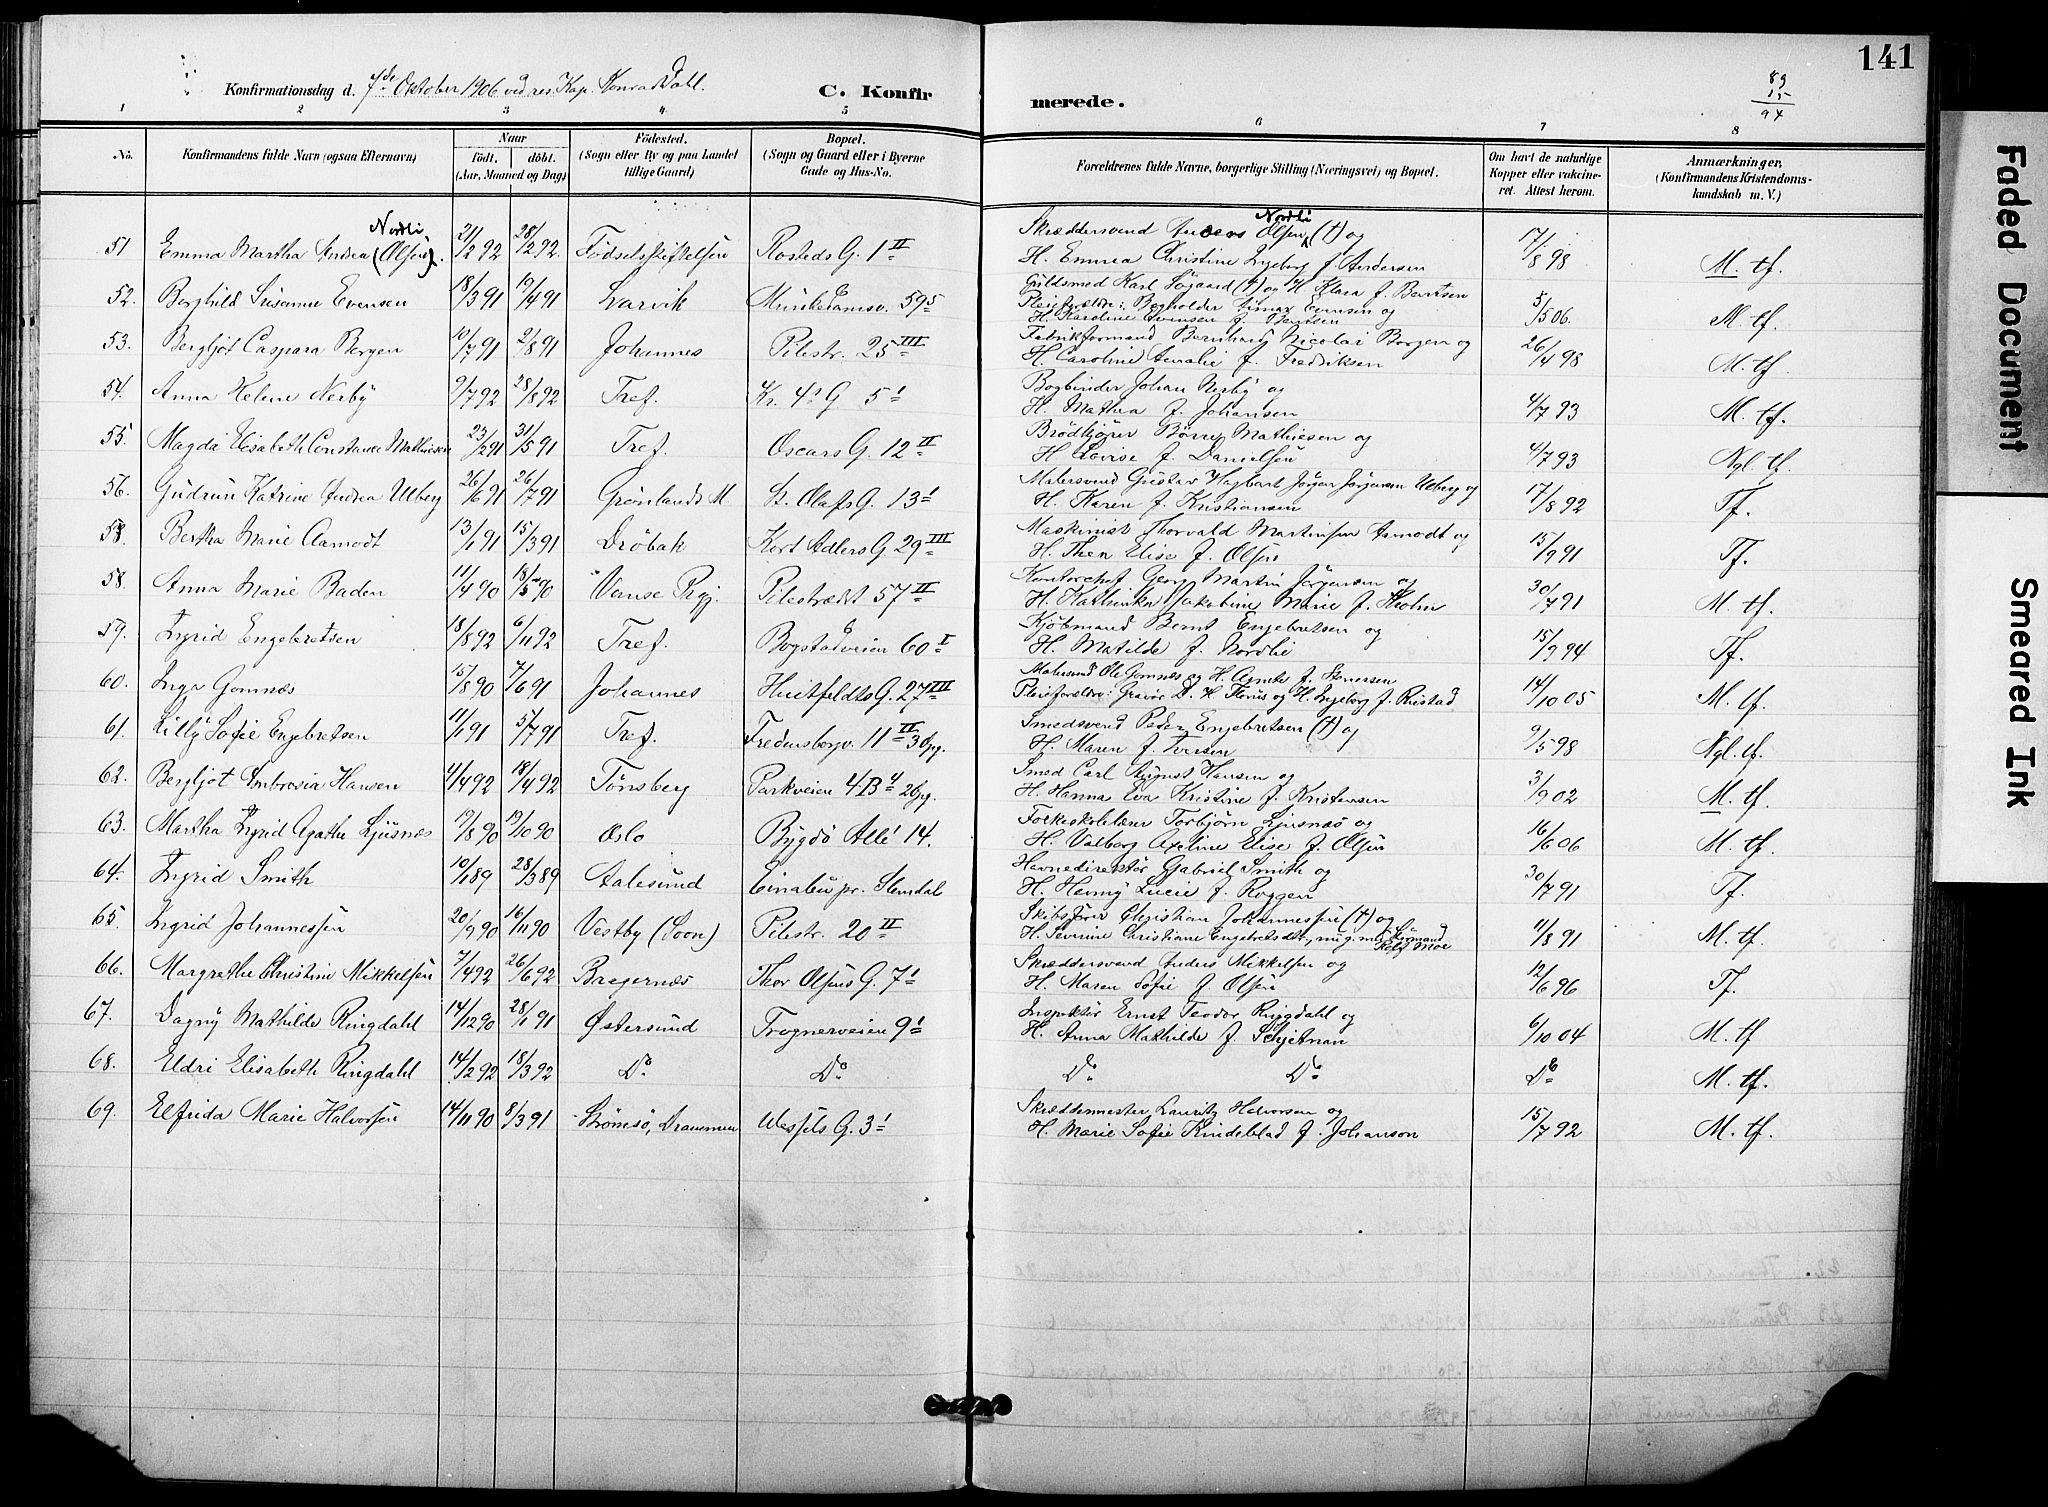 141
Konfirmationsdag d. 7de Oktober 1906 ved res. Kap. Konrad Dahl. C. Konfir merede.
89
15
94
1 2 3 4 5 6 7 8
No. Konfirmandens fulde Navn (ogsaa Efternavn) Naar födt. döbt. (Aar, Maaned og Dag) Födested. (Sogn eller By og paa Landet tillige Gaard) Bopæl. (Sogn og Gaard eller i Byerne Gade og Hus-No. Forældrenes fulde Navne, borgerlige Stilling (Næringsvei) og Bopæl. Om havt de naturlige Kopper eller vakcineret. Attest herom. Anmærkninger, (Konfirmandens Kristendomskundskab m. V.)
Nordli Nordli
51 Emma Martha Andrea (Olsen). 21/2 92 28/2 92 Fødselsstiftelsen Rosteds G. 1 II Skræddersvend Anders Olsen (†) og
H. Emma Christine Ingeborg f. Andersen 17/8 98 M. tf.
52. Borghild Susanne Evensen 18/3 91 19/4 91 Larvik Munkedamsv. 59 5 Guldsmed Karl Søgaard (†) og H. Klara f. Berntsen
Pleieforældre: Bogholder Evensen og
H. Karoline Evensen f. Berntsen 5/5 06. M. tf.
53. Bergljot Caspara Borgen 10/7 91 2/8 91 Johannes Pilestr. 25 III Fabrikformand Bernhard Nicolai Borgen og
H. Caroline Amalie f. Fredriksen 26/4 98 M. tf
54. Anna Helene Nerby 9/7 92 28/8 92 Tref. Kr. 4s G 5 1 Bogbinder Johan Nerby og
H. Mathea f. Johansen 4/7 93 M. tf.
55. Magda Elisabeth Constance Mathiesen 23/2 91 31/5 91 Tref. Oscars G. 12 II Brödkjører Mathiesen og
H. Lovise f. Danielsen 4/7 93 Ngl. tf.
56. Gudrun Katrine Andrea Ulberg 26/6 91 26/7 91 Grønlands M St. Olafs G. 13 1 Malersvend Gustav Jørgensen Ulberg og
H. Karen f. Kristiansen 17/8 92 Tf.
58. Bertha Marie Aamodt 13/1 91 15/3 91 Drøbak Kort Adlers G. 29 III Maskinist Thorvald Martinsen Aamodt og
H. Elise f. Olsen 15/9 91 Tf.
58. Anna Marie Baden 11/4 90 18/5 90 Vanse Pgj. Pilestrædet 57 II Kontorchef Georg Martin Jørgensen og
H. Kathinka Jakobine Marie f. Holm 30/7 91 M. tf.
59. Ingrid Engebretsen 18/8 92 6/11 92 Tref. Bogstadveien 60 I Kjøbmand Bernt Engebretsen og
H. Matilde f. Nordlie 15/9 94 Tf.
60. Inga Gomnæs 15/8 90 7/6 91 Johannes Huitfeldts G. 27 III Malersvend Ole Gomnæs og H. f.
Pleieforældre: Gravør og H. Ingeborg f. 14/10 05 M. tf.
61. Lilly Sofie Engebretsen 11/1 91 5/7 91 Tref. Fredensborgv. 11 II 3 Opg. Smedsvend Peder Engebretsen (†) og
H. Maren f. Iversen 9/5 98 Ngl. tf.
62. Bergljot Ambrosia Hansen 4/4 92 18/4 92 Tønsberg Parkveien 4B 4 2 Opg. Smed Carl August Hansen og
H. Hanna Eva Kristine f. Kristensen 3/9 02 M. tf.
63. Martha Ingrid Agathe Ljusnæs 19/8 90 19/10 90 Oslo Bygdö Allé 14. Folkeskolelærer Torbjørn Ljusnæs og
H. Valborg Axeline Elise f. Olsen 16/6 06 M. tf.
64. Ingrid Smith 10/1 89 28/3 89 Aalesund Einabu pr. Stensdal Havnedirektör Gabriel Smith og
H. Henny Lucie f. Roggen 30/7 91 Tf.
65. Ingrid Johannessen 20/9 90 16/11 90 Vestby (Soon) Pilestr. 20 II Skibsfører Christian Johannessen (†) og
H. Severine Christiane Engebretsdt., nu g. m. Moe 11/8 91 M. tf.
66. Margrethe Christine Mikkelsen 7/4 92 26/6 92 Bragernæs Thor Olsens G. 7 1 Skræddersvend Anders Mikkelsen og
H. Maren Sofie f. Olsen 12/6 96 Tf.
67. Dagny Mathilde Ringdahl 14/12 90 28/1 91 Østersund Frognerveien 9 1 Inspektør Ernst Teodor Ringdahl og
H. Anna Mathilde f. Schjetnan 6/10 04 M. tf
68. Eldri Elisabeth Ringdahl 14/2 92 18/3 92 Do. Do Do Do Do M. tf.
69. Elfrida Marie Halvorsen 14/11 90 8/3 91 Strömsö, Drammen Wessels G. 3 1 Skræddermester Lauritz Halvorsen og
H. Marie Sofie Kindeblad f. Johanson 15/7 92 M. tf.
Faded Document
Smeared Ink